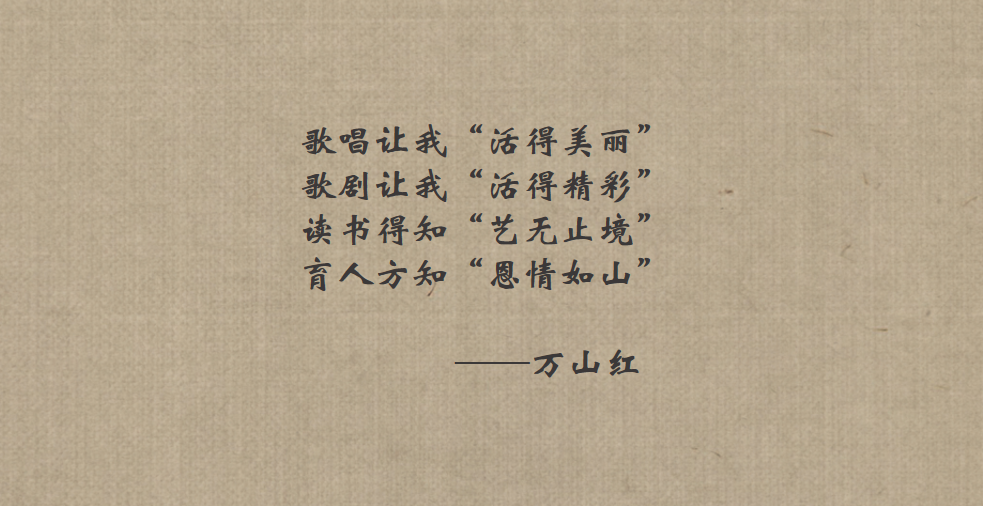 歌唱让我“活得美丽”
歌剧让我“活得精彩”
读书得知“艺无止境”
育人方知“恩情如山”
——万山红